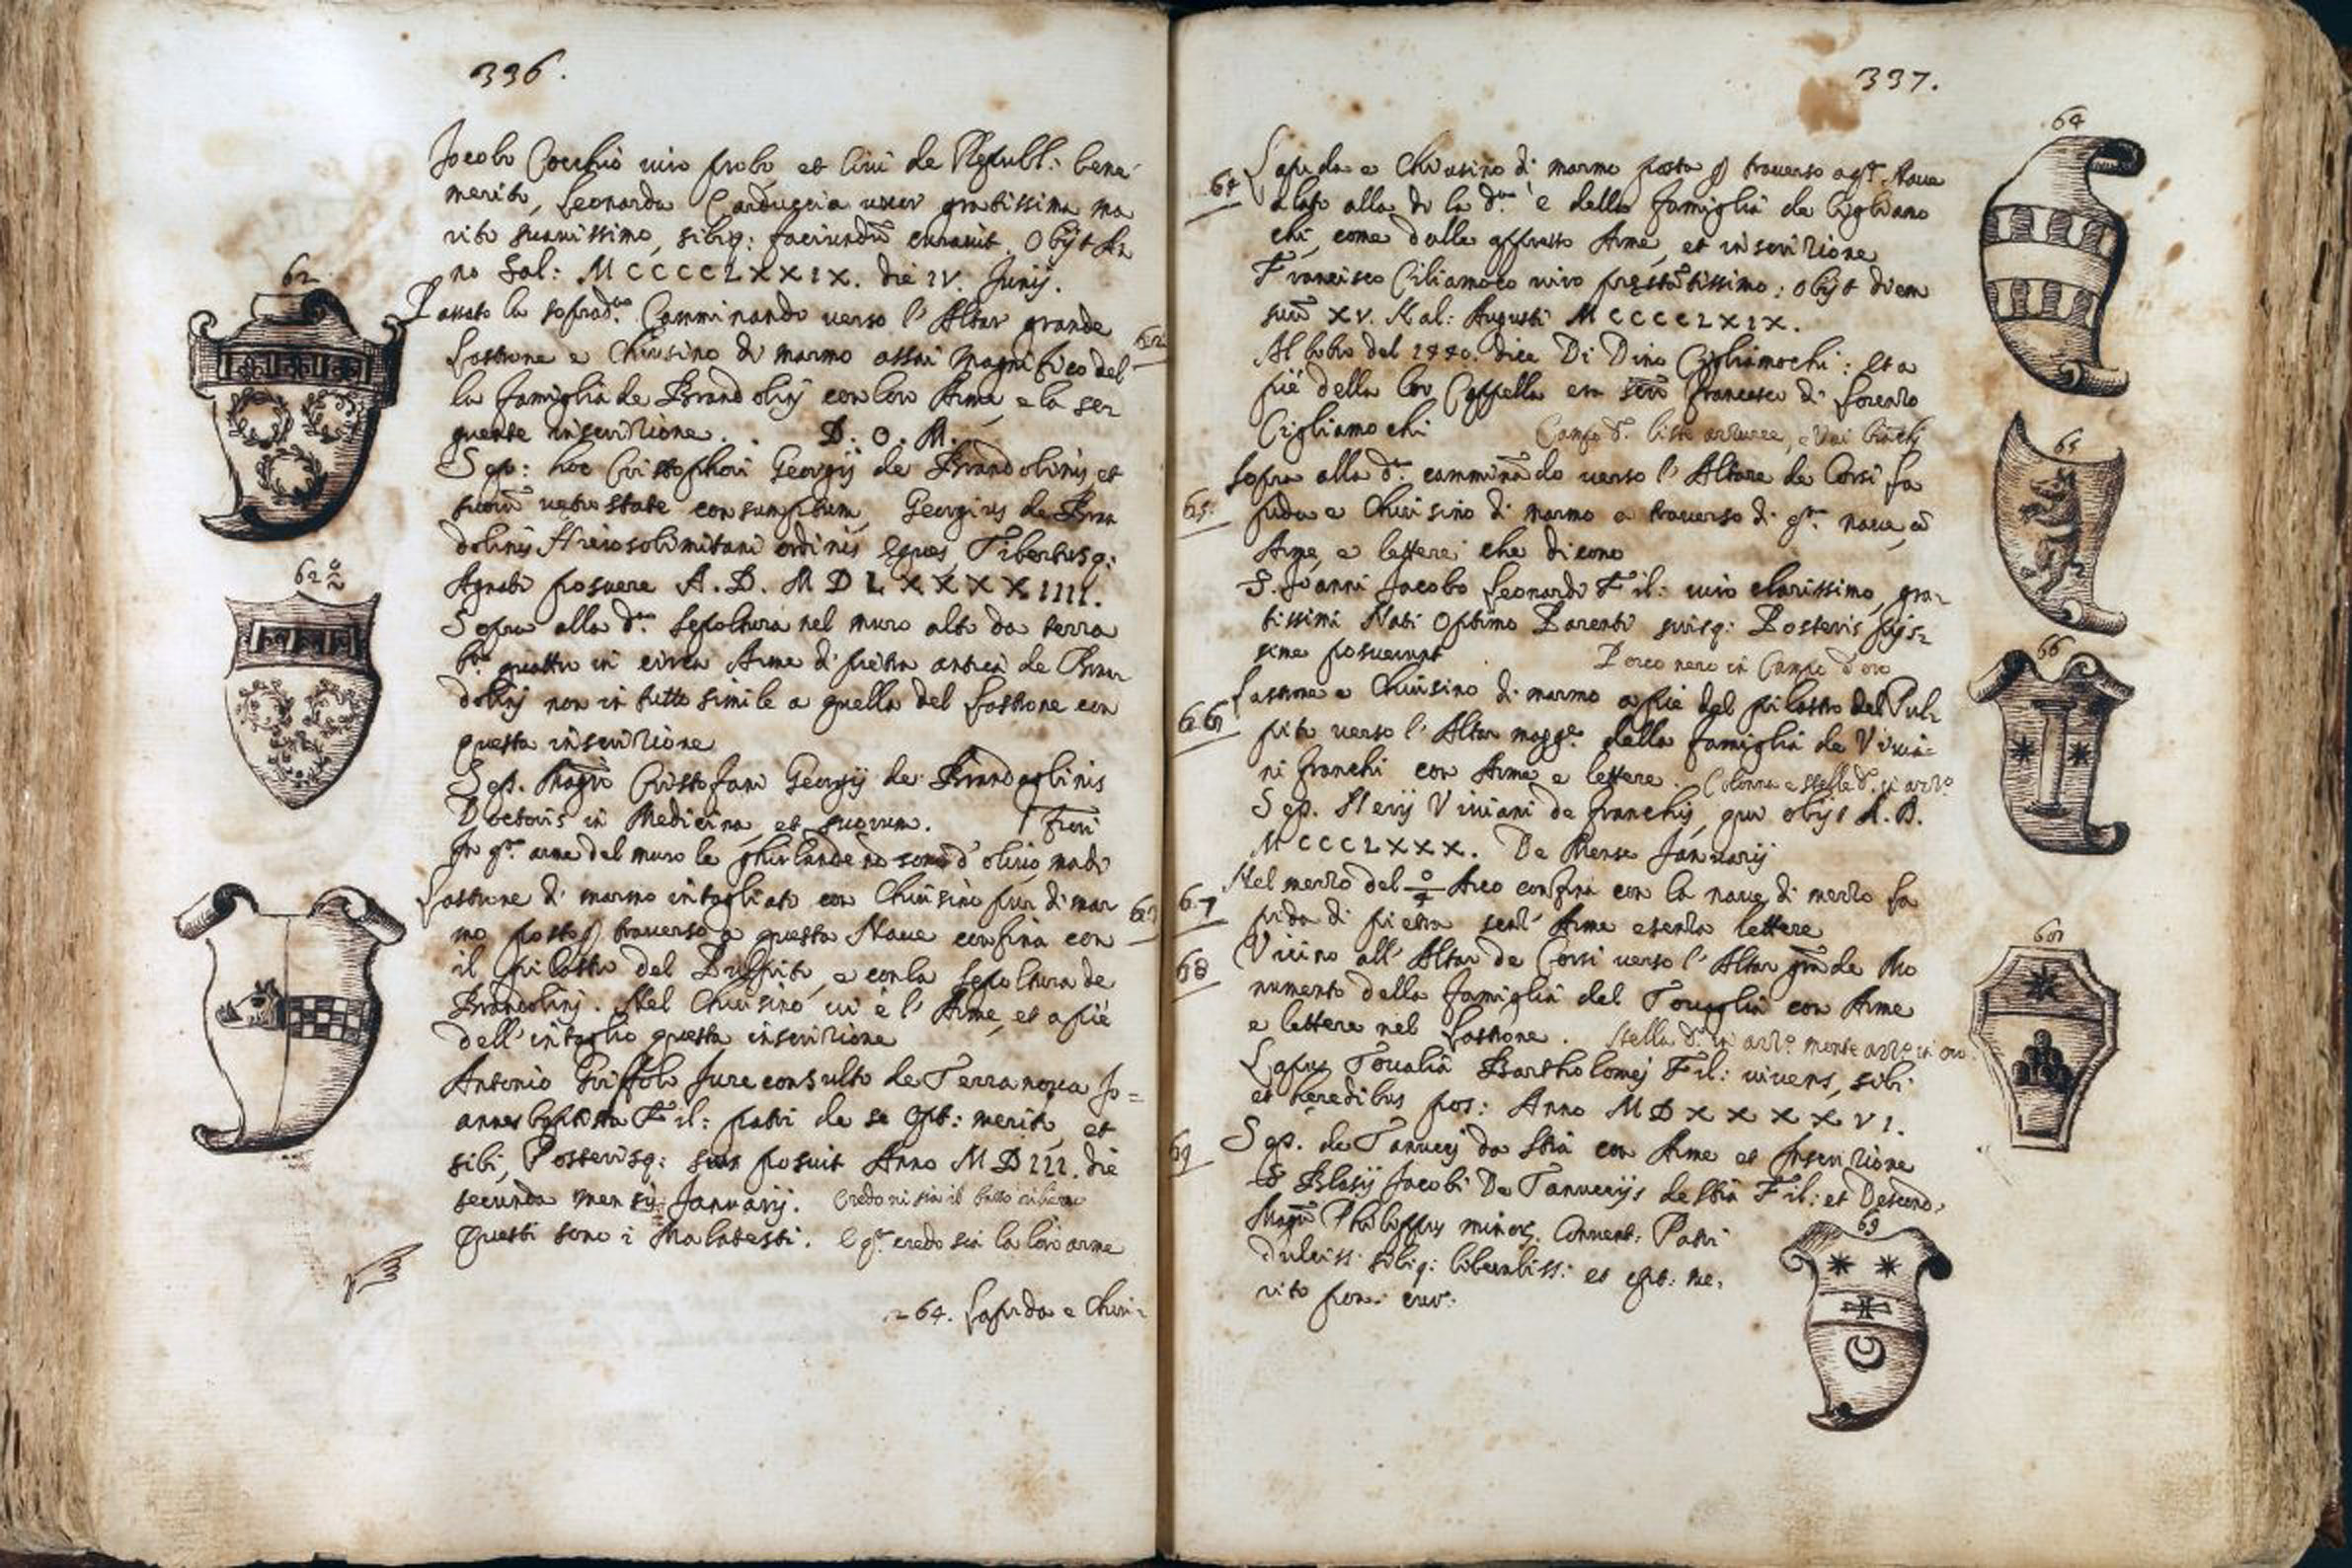 336.
Jacobo Cocchio viro probo, et Civi de Republ: bene
merito, Leonarda Carduccia uxor gratissima ma
rito suavissimo, sibiq: faciundũ curavit. Obijt An
no Sal: MCCCCLXXIX. die IV. Junij.
62
Passato la soprad.ª Camminando verso l'Altar grande
62
lastrone e Chiusino di marmo assai magnifico del
la famiglia de Brandolinj con loro Arme, e la se
guente inscrizione. D. O. M.
Sep: hoc Cristophori Georgij de Brandolinis et
suorũ vetustate consumptum, Georgius de Bran
dolinis Hierosolimitani ordinis Eques, Tibertusq:
Agnati posuere A. D. MDLXXXXIIII.
62
Sopra alla d.ª sepoltura nel muro alto da terra
quattro in circa Arme di pietra antica de Bran
dolinj non in tutto simile a quella del lastrone con
questa inscrizione
Sep. Magrĩ Cristofani Georgij de Brandaglinis
Doctoris in Medicina, et suorum.
In q.ª arme del muro le ghirlande nõ sono d'olivo, ma di
fiori
Lastrone di marmo intagliato con Chiusino pur di mar
63
mo posto traverso a questa Nave confina con
il pilastro del Pulpito, e con la sepoltura de
Brandolinj. Nel Chiusino vi è l'Arme, et a piè
dell'intaglio questa inscrizione
Antonio Griffoli Jureconsulto de Terranova Jo=
annes baptista Fil: patri de se opt: merito, et
sibi, Posterisq: suis posuit Anno MDIII. die
secunda mensis Januarij. Credo vi sia il
Questi sono i Malatesti. e q.ª credo sia la loro arme
64. Lapida e Chiu-
337.
64
64 Lapida e Chiusino di marmo posta traverso a q.ª Nave
a lato alla di là d.ª è della famiglia de Cigliamo
chi, come dalla appresso Arme, et inscrizione
Francisco Ciliamoco viro prestãtissimo: obijt diem
suũ XV. Kal: Augusti MCCCCLXIX.
Al del 1440. dice Di Dino Cigliamochi: et a
piè della lor Cappella era Francesco di Lorenzo
Cigliamochi
Campo liste azzurre, e Vai bianchi
65
65. Sopra alla d.ª camminãdo verso l'Altare de Corsi la
pida e Chiusino di marmo a traverso di q.ª nave, cõ
Arme, e lettere che dicono
S. Joanni Jacobo Leonardi Fil: viro clarissimo, gra-
tissimi Nati Optimo Parenti suisq: Posteris pijs-
sime posuerunt
Porco nero in Campo d'oro
66
66 Lastrone e Chiusino di marmo a piè del pilastro del Pul-
pito verso l'Altar magg.e della famiglia de Vivia-
ni franchi con Arme e lettere. Colonna e stelle in azz.º
Sep. Nerij Viviani de franchij, qui obijt A. D.
MCCCLXXX. De Mense Januarij
67 Nel mezzo del Arco confina con la nave di mezzo la
pida di pietra senz'Arme e senza lettere
68
68 Vicino all'Altar de Corsi verso l'Altar grãde Mo
numento della famiglia del Tovaglia con Arme
e lettere nel lastrone. Stella in azz.º monte azz.º in oro.
Lapus Tovalia Bartholomej Fil: vivens, sibi
et heredibus pos: Anno MDXXXXVI.
69 Sep. de Tanucci da Stia con Arme et Inscrizione
S Blasij Jacobi De Tanuccijs de Stia Fil: et Descend.
Magrĩ Philippus minor. Convent: Patri
dulciss: sibiq: et opt: me.
rito poni cur:
69